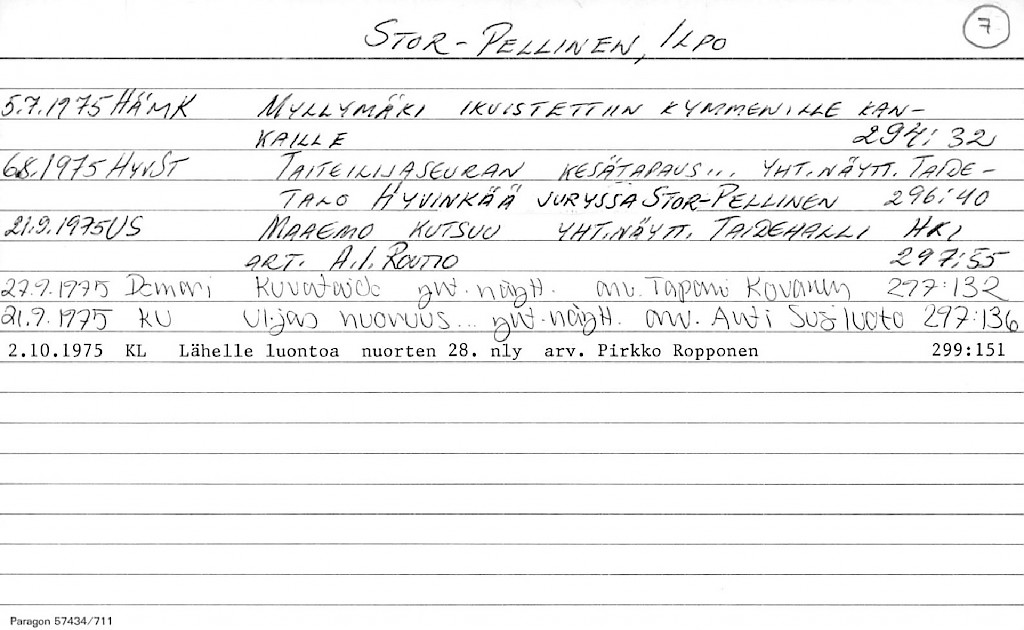 STOR-PELLINEN, ILPO
7
5.7.1975 HÄMK MYLLYMÄKI IKUISTETTIIN KYMMENILLE KAN-
KAILLE 294:32
6.8.1975 HYVST TAITEILIJASEURAN KESÄTAPAUS... YHT.NÄYTT. TAIDE-
TALO HYVINKÄÄ JURYSSÄ STOR-PELLINEN 296:40
21.9.1975 US MAAEMO KUTSUU YHT.NÄYTT. TAIDEHALLI HKI
ART. A.I. ROUTIO 297:55
27.9.1975 Demari Kuvataide yht.näytt. arv. Tapani Kovanen 297:132
21.9.1975 KU Uljas nuoruus... yht.näytt. arv. Antti Suziluoto 297:136
2.10.1975 KL Lähelle luontoa nuorten 28. nly arv. Pirkko Ropponen 299:151
Paragon 57434/711